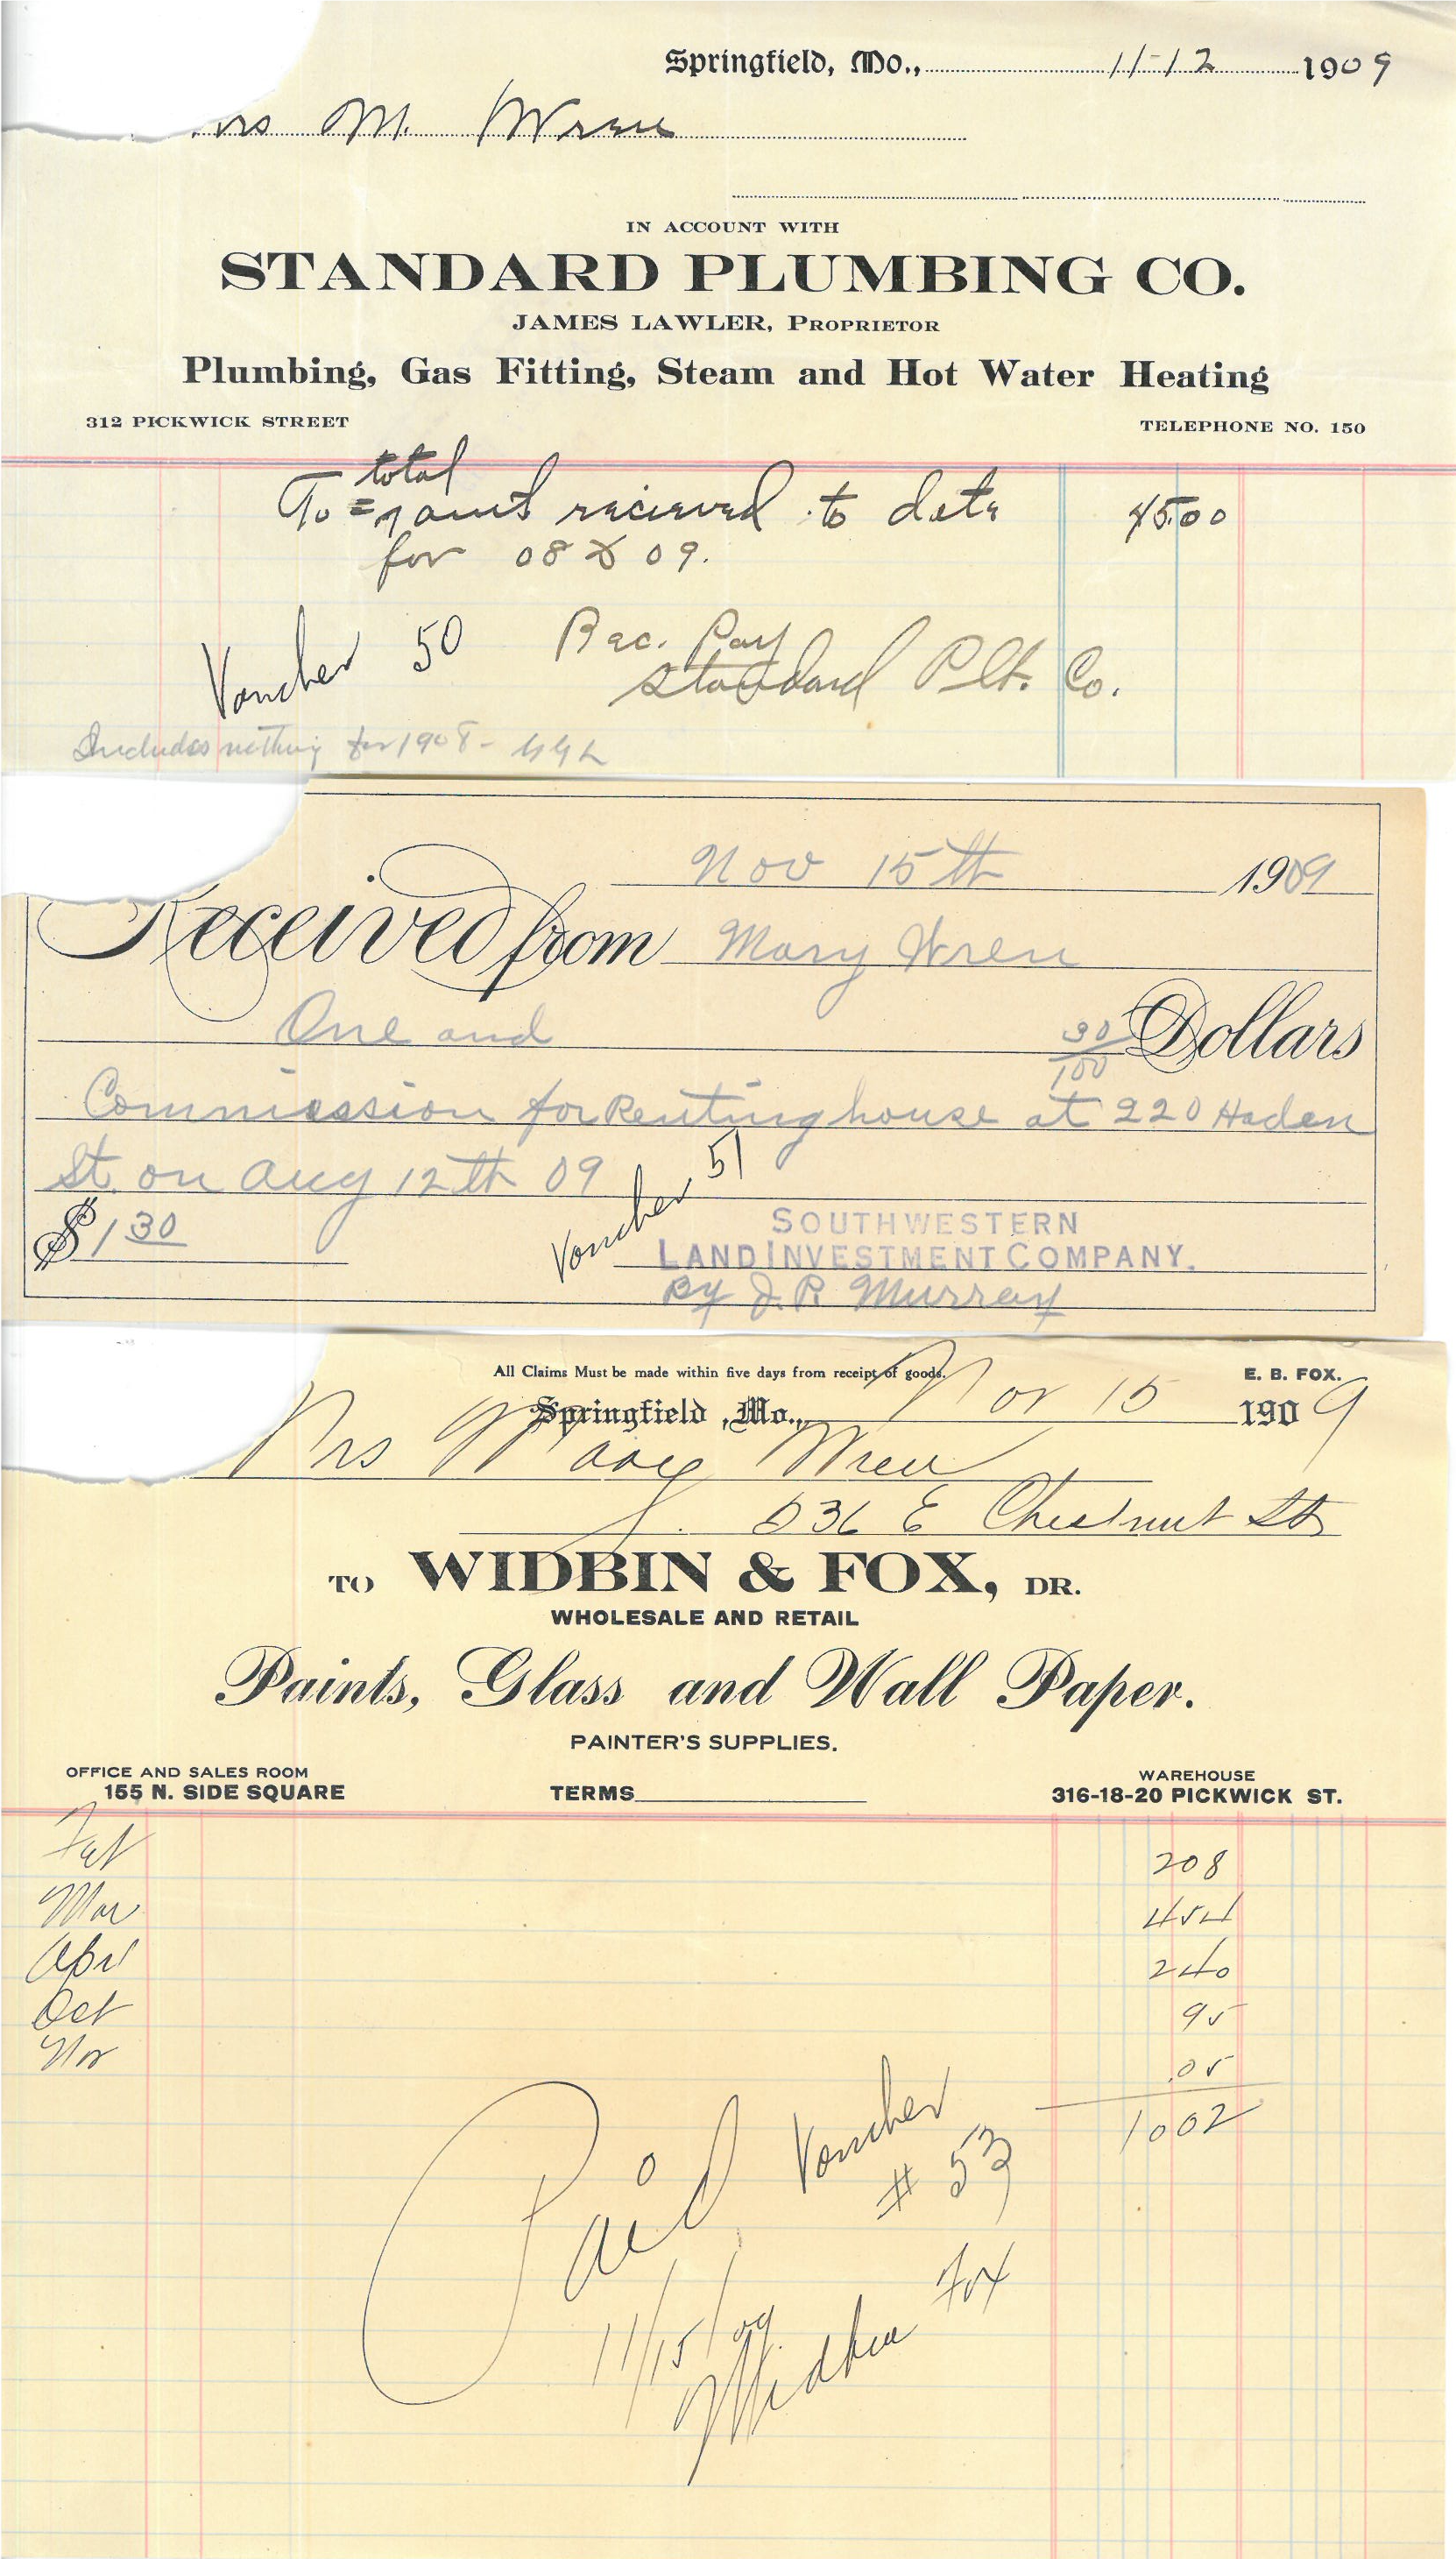 Springfield, Mo., 11-12 1909
rs M. Wren
IN ACCOUNT WITH
STANDARD PLUMBING CO.
JAMES LAWLER, PROPRIETOR
Plumbing, Gas Fitting, Steam and Hot Water Heating
312 PICKWICK STREET TELEPHONE NO. 150
total
To amt recieved to date 45.00
for 08 & 09.
Voucher 50 Rec. Pay
Standard Plb. Co.
Includes nothing for 1908-
Nov 15th 1909
Received from Mary Wren
One and 30/100 Dollars
Commission for Renting house at 220 Haden
St. on Aug 12th 09
Voucher 51
$1 30
SOUTHWESTERN
LAND INVESTMENT COMPANY.
By J. R. Murray
All Claims Must be made within five days from receipt of goods. E. B. FOX.
Springfield, Mo., Nov 15 1909
Mrs Mary Wren
636 E Chestnut St
TO WIDBIN & FOX, DR.
WHOLESALE AND RETAIL
Paints, Glass and Wall Paper.
PAINTER'S SUPPLIES.
OFFICE AND SALES ROOM WAREHOUSE
155 N. SIDE SQUARE TERMS 316-18-20 PICKWICK ST.
Feb 208
Mar 454
Apr 240
Oct 95
Nov .05
1002
Paid Voucher
# 53
11/15/09
Widbin Fox